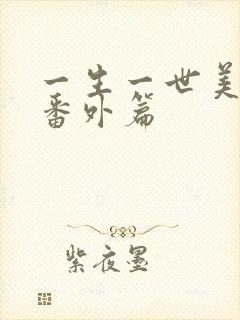 一生一世美
番外篇
紫夜墨